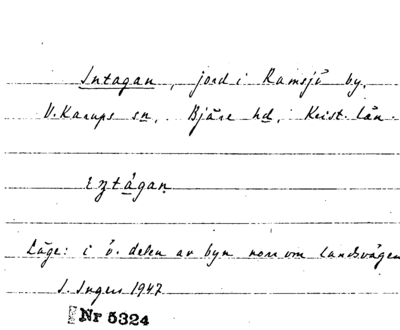 Intagan, jord i Ramsjö by,
V. Karups sn, Bjäre hd, Krist. län.
Läge: i ö. delen av byn norr om landsvägen
S. Ingers 1947
Nr 5324